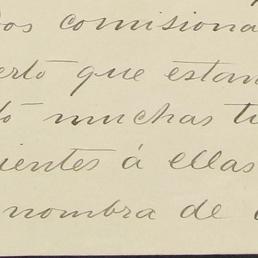 dos comisiona
erto que estan
tó muchas ti
ientes á ellas
nombra de